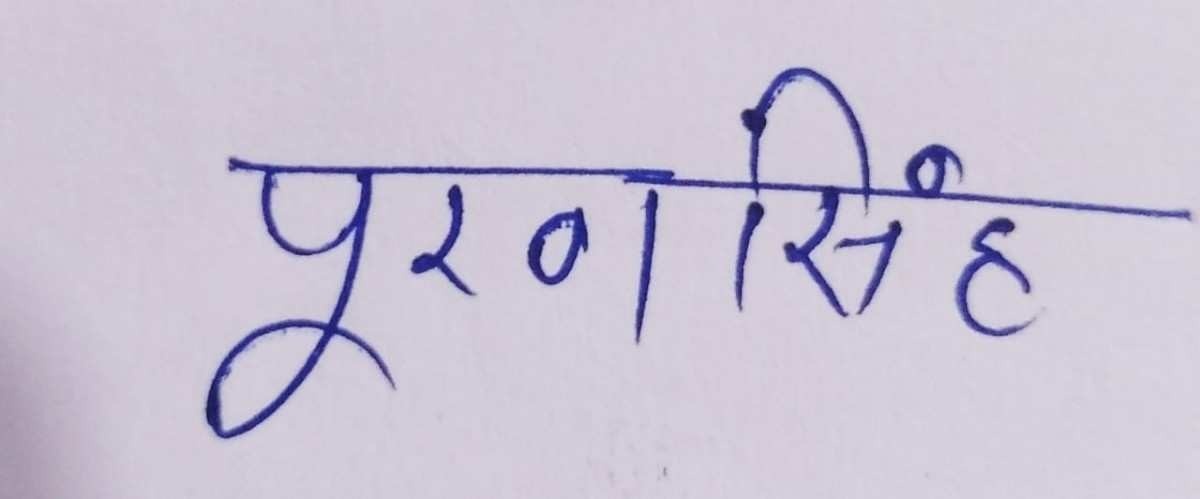 पूरणसिंह